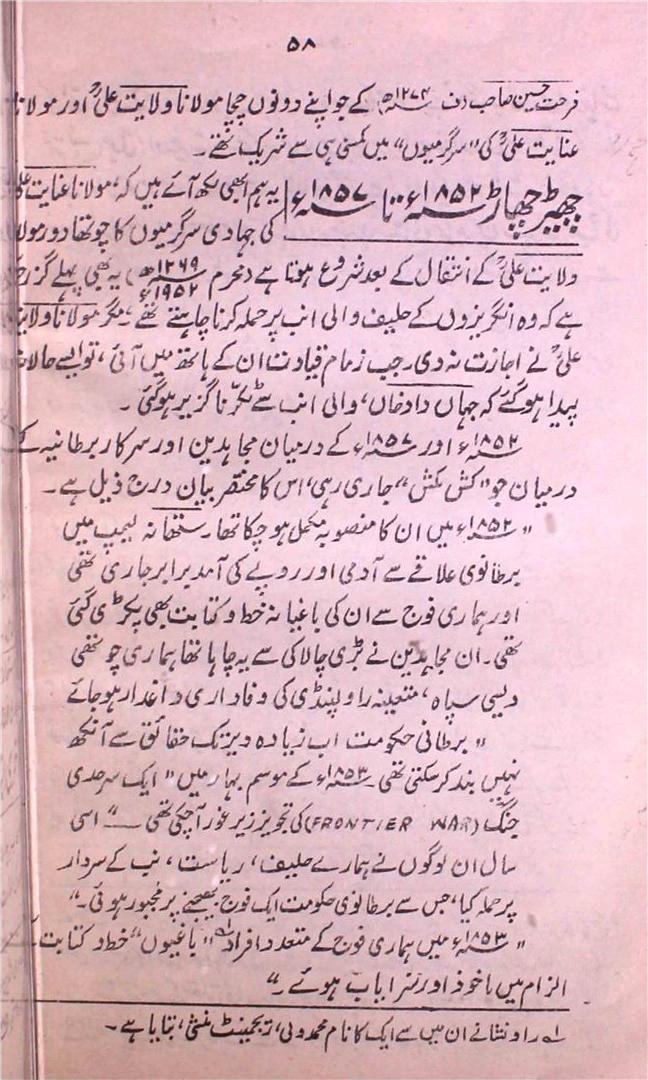 ۵۸
فرحت حسین صاحب (ف ۱۲۷۴ھ) کے جو اپنے دونوں چچا مولانا ولایت علیؒ اور مولانا
عنایت علیؒ کی "سرگرمیوں" میں کمسنی ہی سے شریک تھے۔
چھیڑ چھاڑ ۱۸۵۲ء تا ۱۸۵۷ء
یہ ہم ابھی لکھ آئے ہیں کہ، مولانا عنایت علی
کی جہادی سرگرمیوں کا چوتھا دور مولا
ولایت علیؒ کے انتقال کے بعد شروع ہوتا ہے (محرم ۱۲۶۹ھ ۱۹۵۲ء) یہ بھی پہلے گزر چکا
ہے کہ وہ انگریزوں کے حلیف والی انب پر حملہ کرنا چاہتے تھے۔ مگر مولانا ولایت
علیؒ نے اجازت نہ دی۔ جب زمام قیادت ان کے ہاتھ میں آئی، تو ایسے حالات
پیدا ہو گئے کہ جہاں داد خاں، والی انب سے ٹکر ناگزیر ہو گئی۔
۱۸۵۲ء اور ۱۸۵۷ء کے درمیان مجاہدین اور سرکار برطانیہ کے
درمیان جو "کش مکش" جاری رہی، اس کا مختصر بیان درج ذیل ہے۔
"۱۸۵۲ء میں ان کا منصوبہ مکمل ہو چکا تھا۔ ستھانہ کیمپ میں
برطانوی علاقے سے آدمی اور روپے کی آمد برابر جاری تھی
اور ہماری فوج سے ان کی باغیانہ خط و کتابت بھی پکڑی گئی
تھی۔ ان مجاہدین نے بڑی چالاکی سے یہ چاہا تھا ہماری چوتھی
دیسی سپاہ، متعینہ راولپنڈی کی وفاداری داغدار ہو جائے
"برطانی حکومت اب زیادہ دیر تک حقائق سے آنکھ
نہیں بند کر سکتی تھی ۱۸۵۳ء کے موسم بہار میں "ایک سرحدی
جنگ" (FRONTIER WAR) کی تجویز زیر غور آ چکی تھی ـــ" اسی
سال ان لوگوں نے ہمارے حلیف، ریاست، نب کے سردار
پر حملہ کیا، جس سے برطانوی حکومت ایک فوج بھیجنے پر مجبور ہوئی۔"
"۱۸۵۳ء میں ہماری فوج کے متعدد افراد لہ "باغیوں" خط و کتابت کے
الزام میں ماخوذ اور سزا یاب ہوئے۔"
لہ راونشا نے ان میں سے ایک کا نام محمد ولی، رجمینٹ منشی، بتایا ہے۔